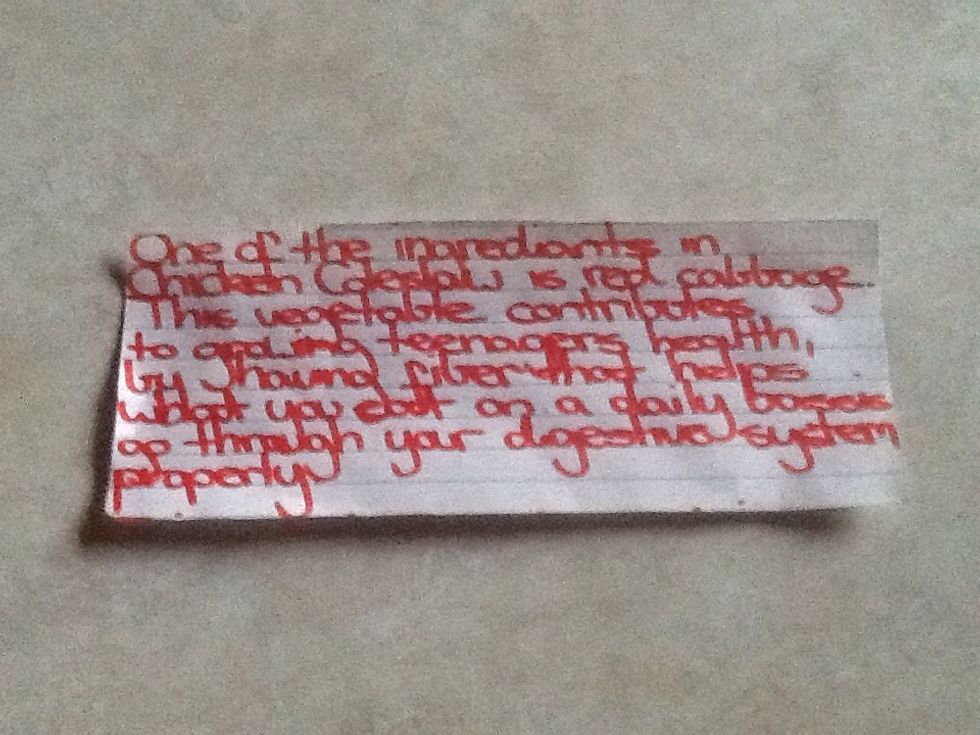 One of the ingrediants in
Chicken Coleslaw is red cabbage.
This vegetable contributes
to growing teenagers health,
by having fiber that helps
what you eat on a daily bases
go through your digestive system
properly